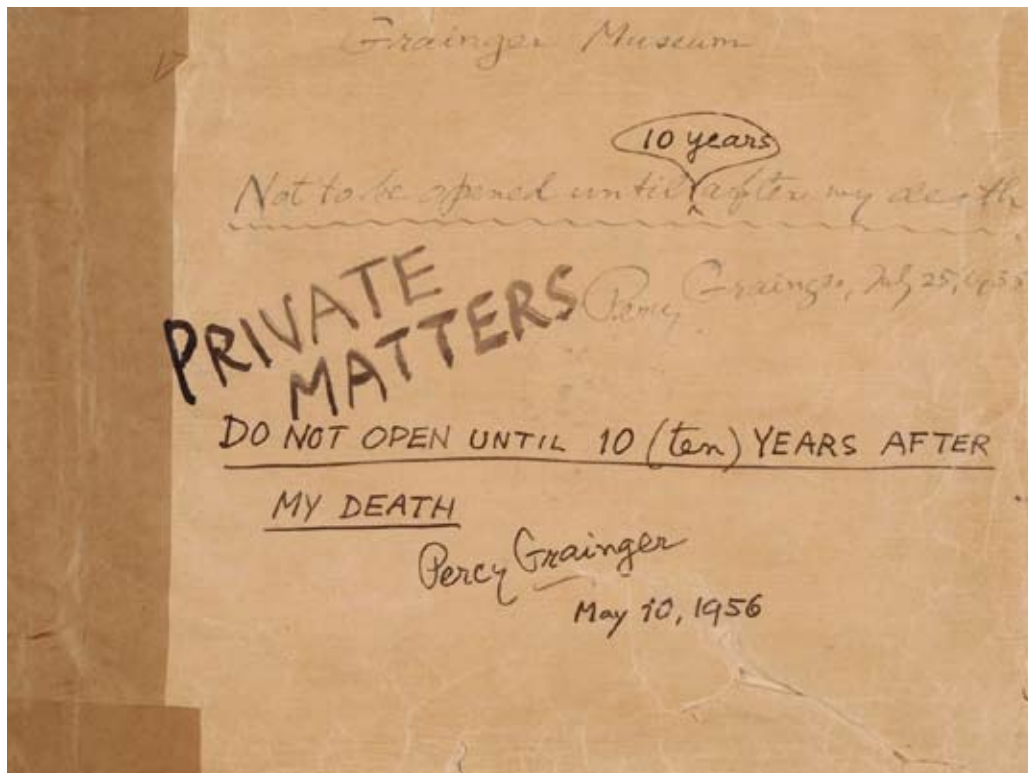 Grainger Museum
10 years
Not to be opened until after my death
Percy Grainger, July 25,
PRIVATE
MATTERS
DO NOT OPEN UNTIL 10 (ten) YEARS AFTER
MY DEATH
Percy Grainger
May 10, 1956